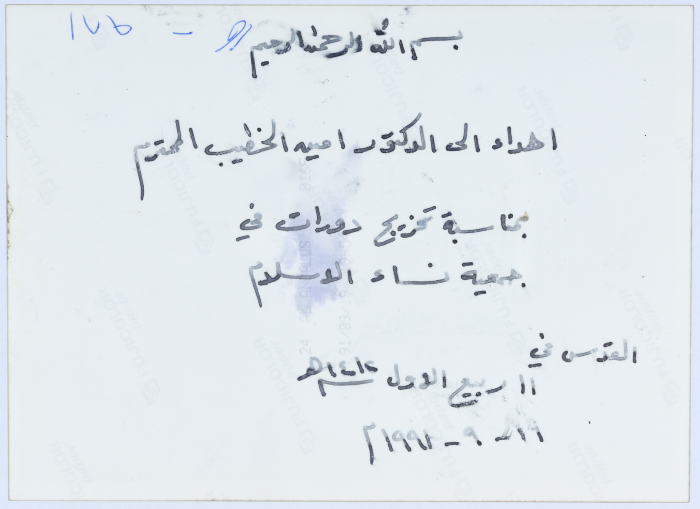 بسم الله الرحمن الرحيم
اهداء الى الدكتور امين الخطيب المحترم
بمناسبة تخريج دورات في
جمعية نساء الاسلام
القدس في
١١ ربيع الاول ١٤١٢هـ
١٩ - ٩ - ١٩٩١م